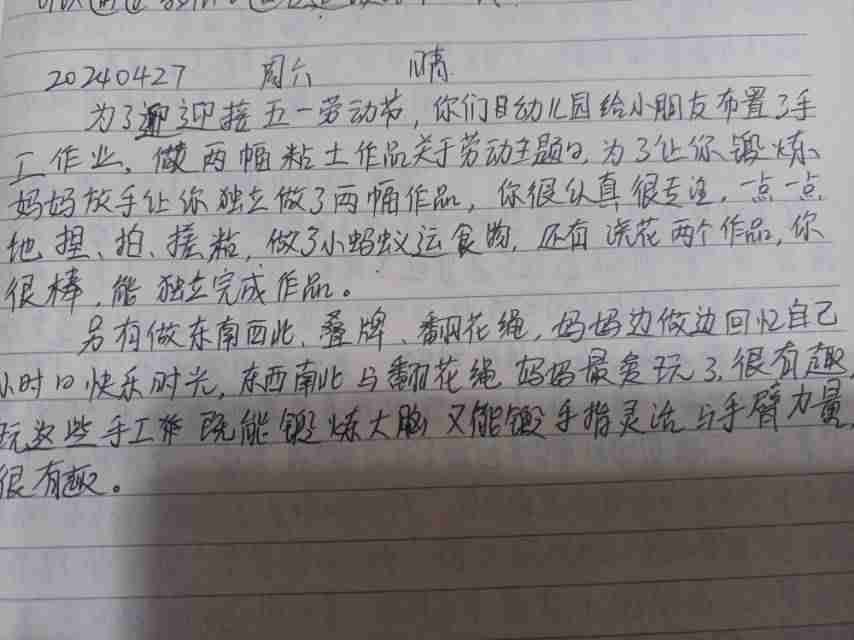 20240427 周六 晴
为了迎接五一劳动节,你们日幼儿园给小朋友布置了手
工作业,做两幅粘土作品关于劳动主题日,为了让你锻炼,
妈妈放手让你独立做了两幅作品,你很认真很专注,一点一点
地捏、拍、搓粘,做了小蚂蚁运食物,还有浇花两个作品,你
很棒,能独立完成作品。
另有做东南西北、叠牌、翻花绳,妈妈边做边回忆自己
小时日快乐时光,东西南北与翻花绳妈妈最爱玩了,很有趣,
玩这些手工作既能锻炼大脑又能锻手指灵活与手臂力量,
很有趣。